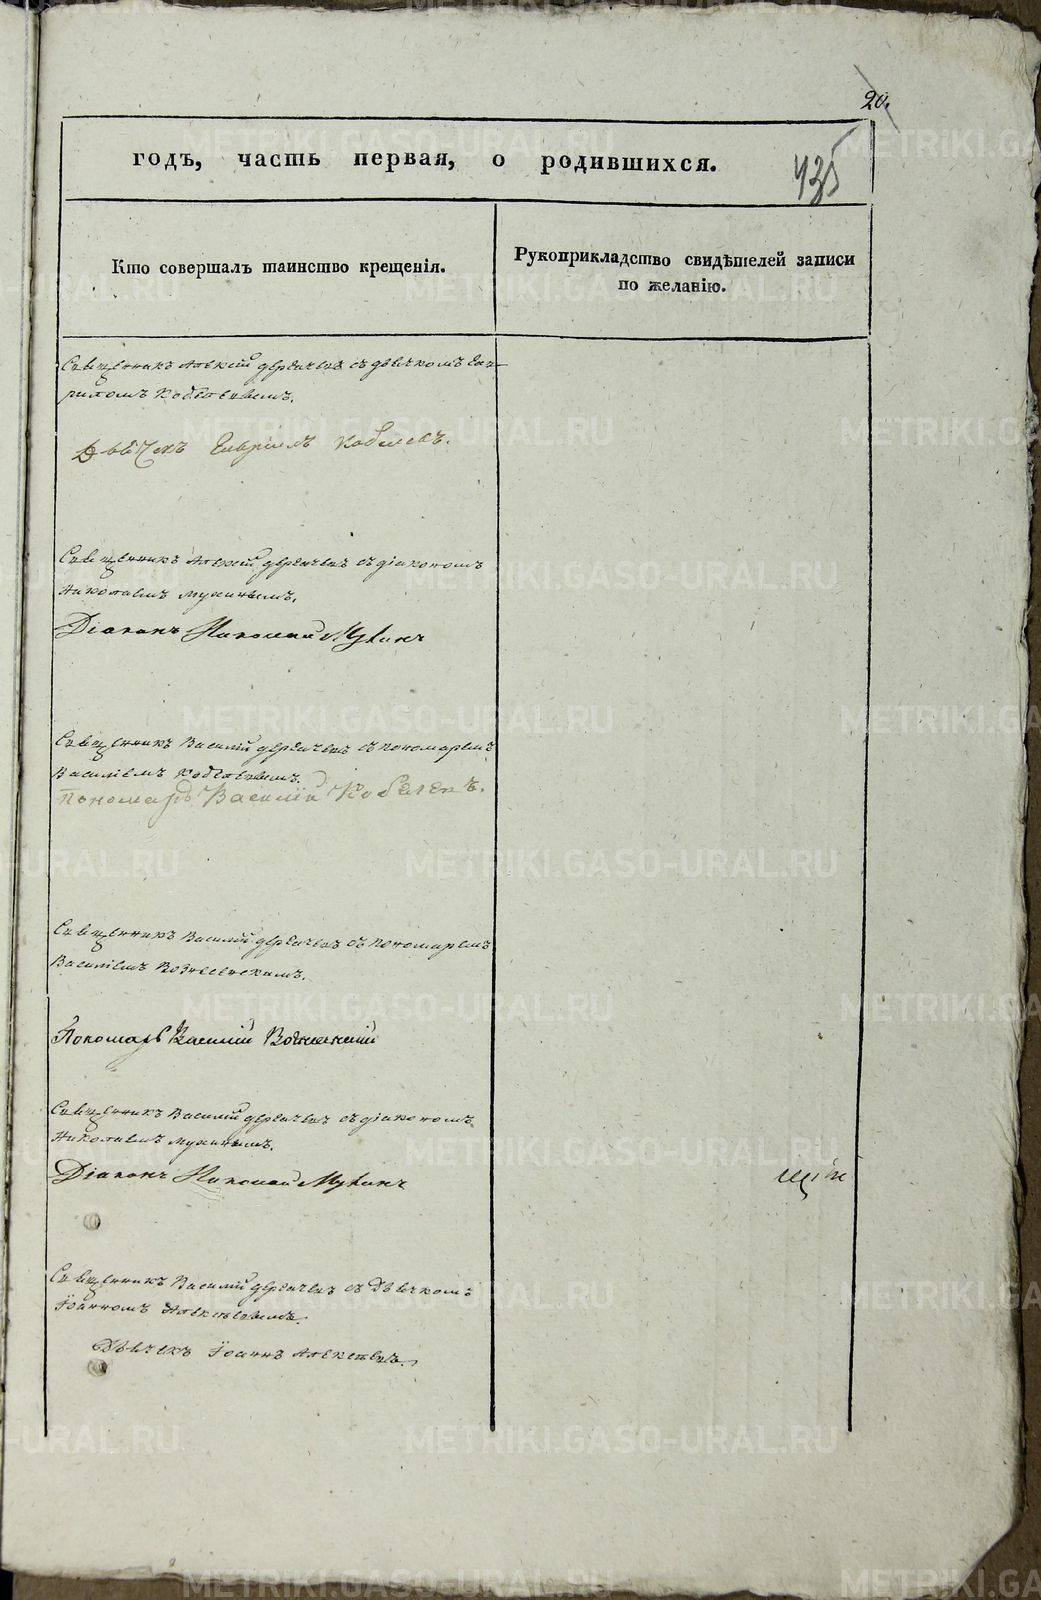 20.
годъ, часть первая, о родившихся.
435
Кто совершалъ таинство крещенія.
Рукоприкладство свидѣтелей записи
по желанію.
Священникъ Алексій съ дьячкомъ Гав-
риломъ Кобелевымъ.
Дьячекъ Гавріилъ Кобелевъ.
Священникъ Алексій съ діакономъ
Николаемъ Мухинымъ.
Діаконъ Николай Мухинъ
Священникъ Василій съ пономаремъ
Василіемъ Кобелевымъ.
Пономарь Василий Кобелевъ.
Священникъ Василій съ пономаремъ
Василіемъ Вознесенскимъ.
Пономарь Василий Вознесенский
Священникъ Василій съ діакономъ
Николаемъ Мухинымъ.
Діаконъ Николай Мухинъ
Священникъ Василій съ дьячкомъ
Іоанномъ Алексѣевымъ.
Дьячекъ Іоаннъ Алексѣевъ.
METRIKI.GASO-URAL.RU